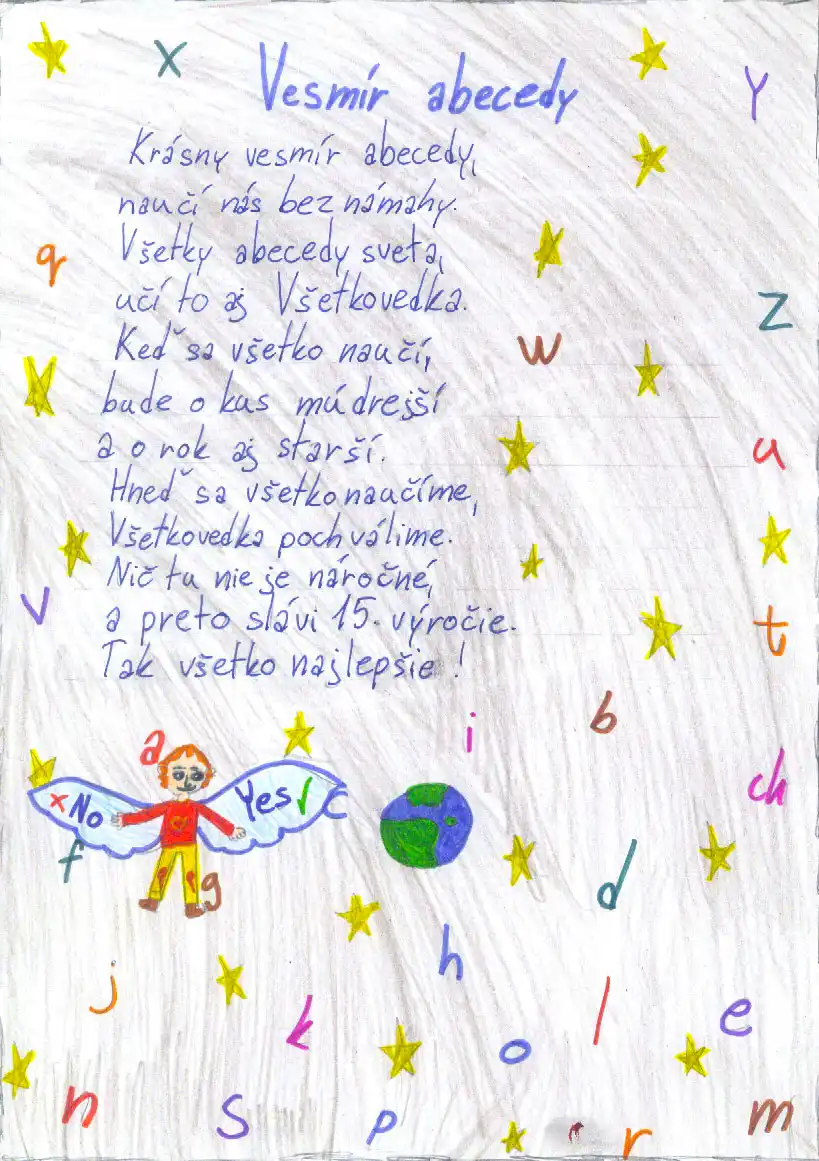 x
Vesmír abecedy
y
Krásny vesmír abecedy,
naučí nás bez námahy.
Všetky abecedy sveta,
q
učí to aj Všetkovedka.
z
Keď sa všetko naučí,
w
bude o kus múdrejší
a o rok aj starší.
u
Hneď sa všetko naučíme,
Všetkovedka pochválime.
Nič tu nie je náročné,
v
a preto slávi 15. výročie.
t
Tak všetko najlepšie!
b
i
a
ch
x No
Yes ✓
f
g
d
h
j
k
l
e
o
n
s
p
r
m